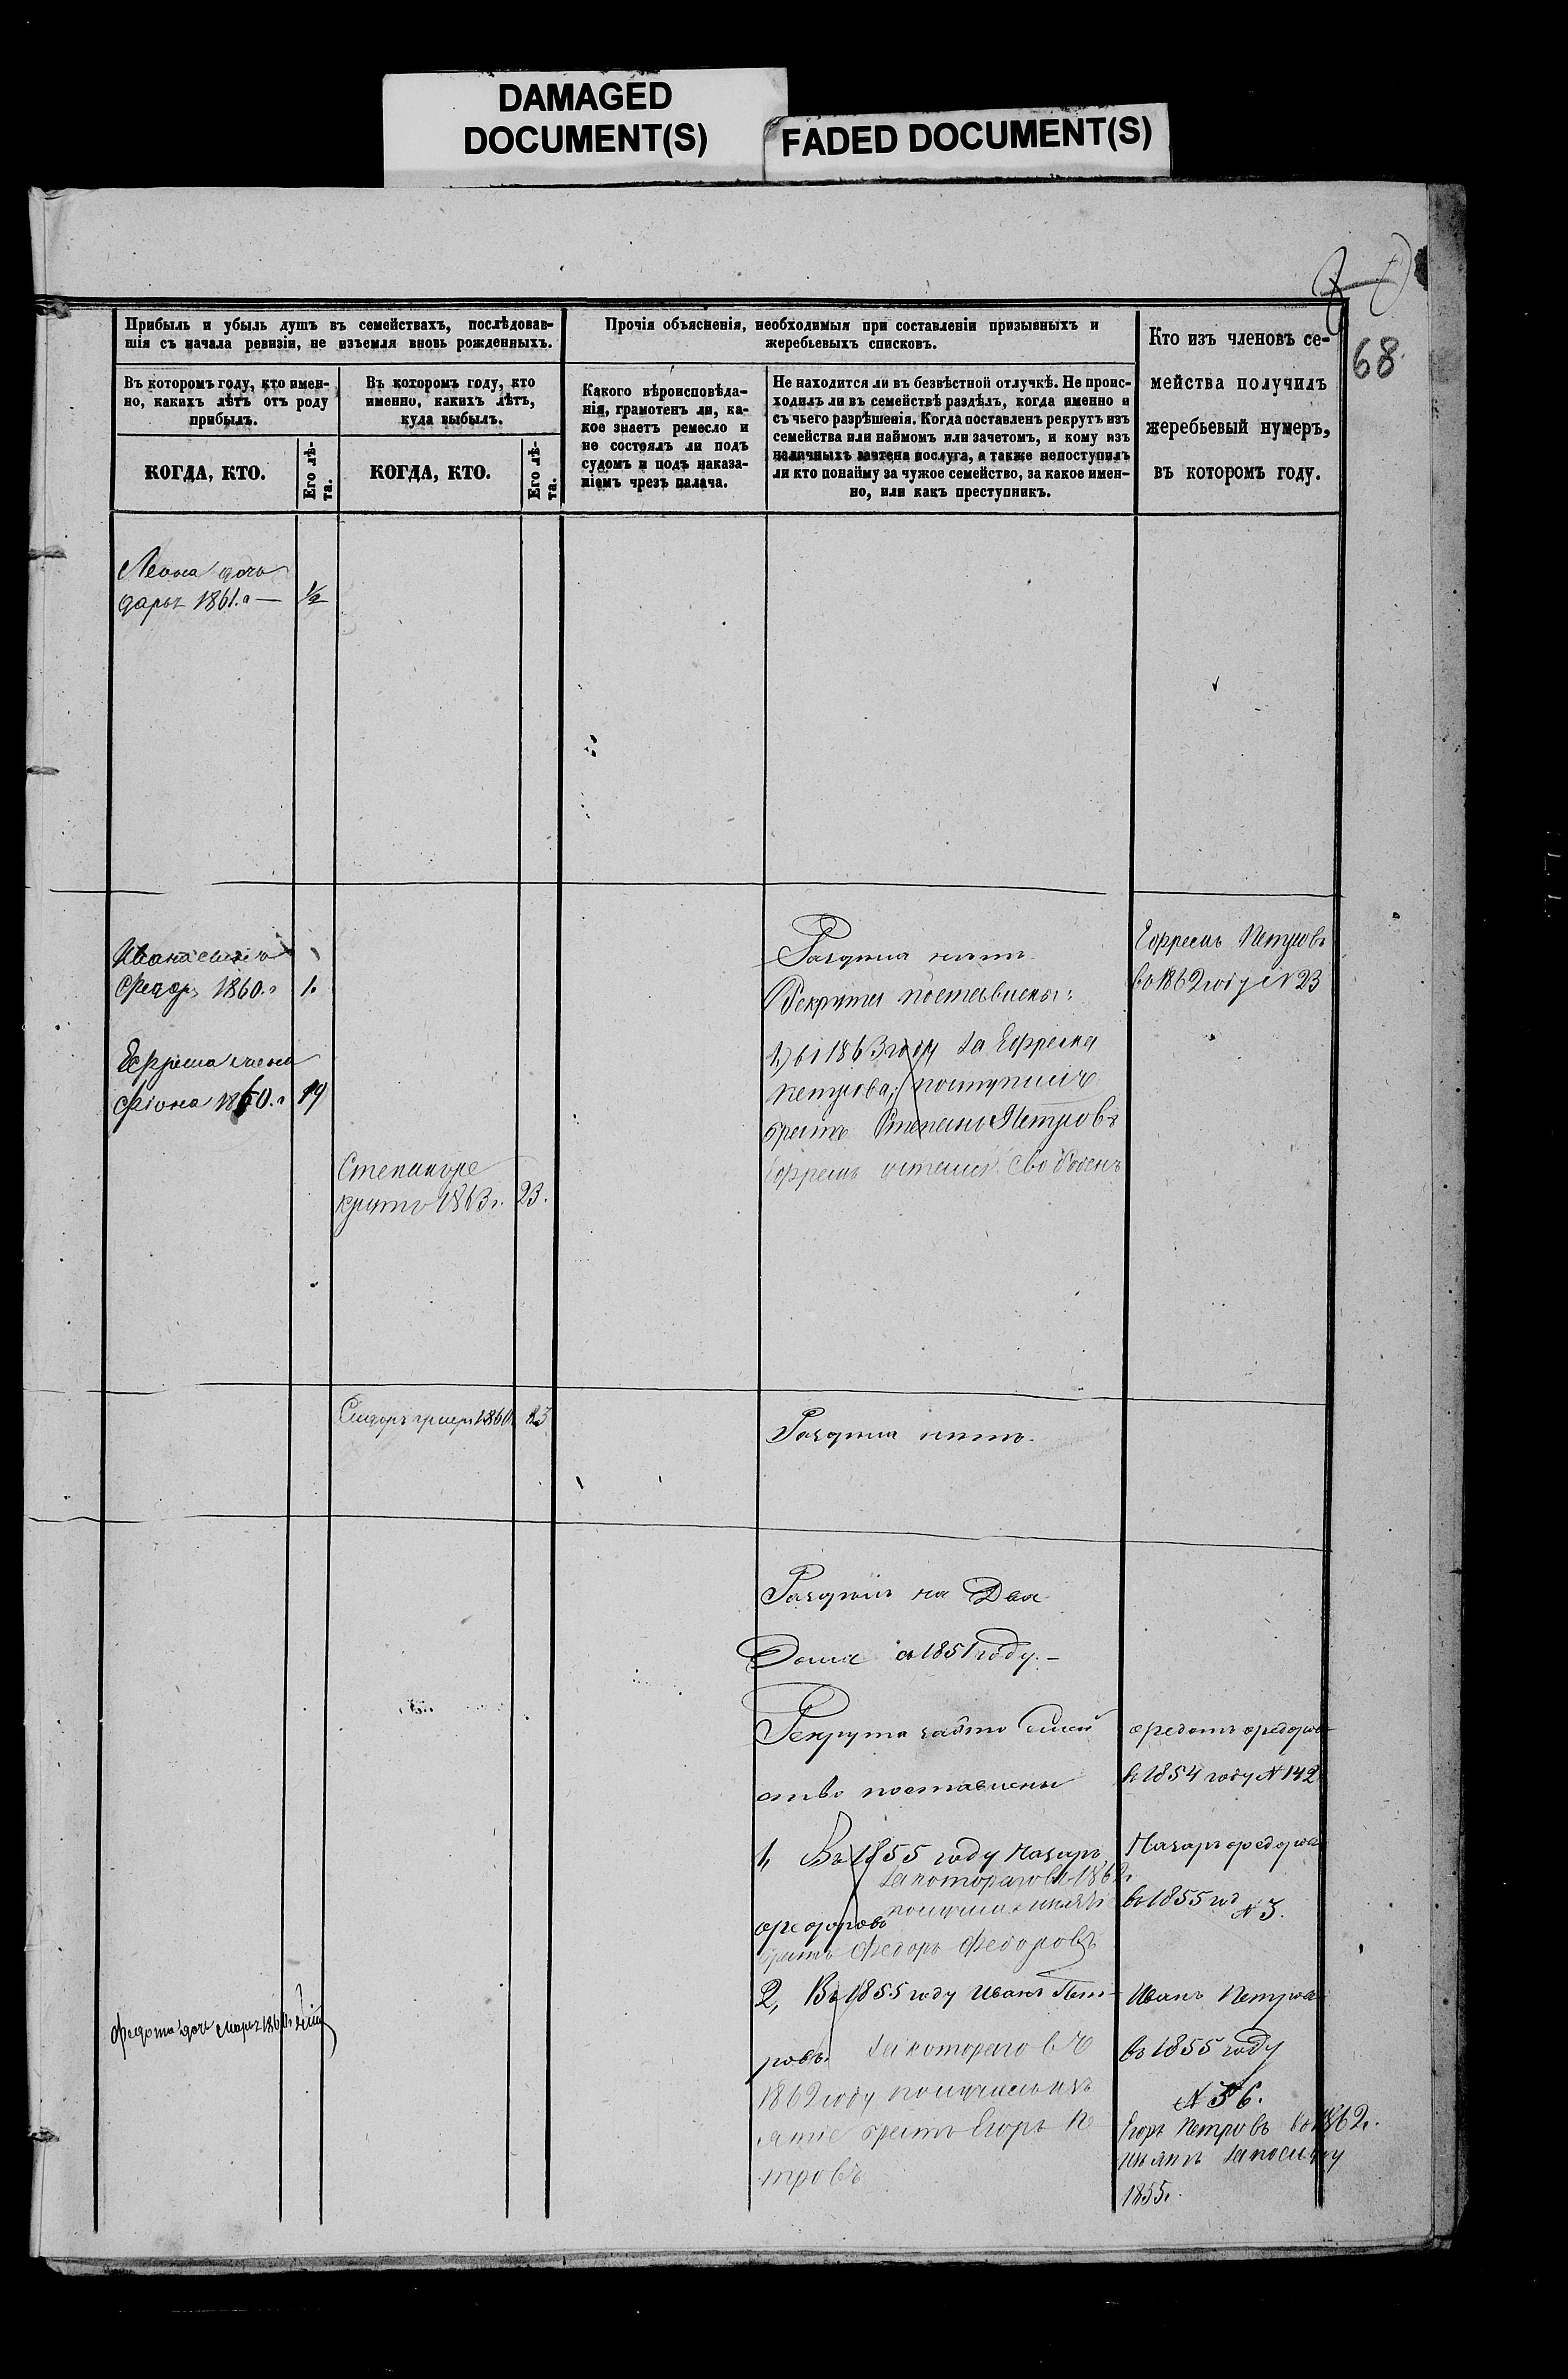 DAMAGED
DOCUMENT(S)
FADED DOCUMENT(S)
68
Прибыль и убыль душъ въ семействахъ, послѣдовав-
шія съ начала ревизіи, не изъемля вновь рожденныхъ.
Въ которомъ году, кто имен-
но, какихъ лѣтъ отъ роду
прибылъ.
КОГДА, КТО.
Его лѣ-
та.
Въ которомъ году, кто
именно, какихъ лѣтъ,
куда выбылъ.
КОГДА, КТО.
Его лѣ-
та.
Прочія объясненія, необходимыя при составленіи призывныхъ и
жеребьевыхъ списковъ.
Какого вѣроисповѣда-
нія, грамотенъ ли, ка-
кое знаетъ ремесло и
не состоялъ ли подъ
судомъ и подъ наказа-
ніемъ чрезъ палача.
Не находится ли въ безвѣстной отлучкѣ. Не проис-
ходилъ ли въ семействѣ раздѣлъ, когда именно и
съ чьего разрѣшенія. Когда поставленъ рекрутъ изъ
семейства или наймомъ или зачетомъ, и кому изъ
наличныхъ зачтена послуга, а также непоступилъ
ли кто понайму за чужое семейство, за какое имен-
но, или какъ преступникъ.
Кто изъ членовъ се-
мейства получилъ
жеребьевый нумеръ,
въ которомъ году.
Леона дочь
Дарья 1861.г — 1/2
Ивана сынъ
Ѳедоръ 1860.г 1.
Ефрема жена
1860.г 19
Степанъ ре
крутъ 1863г. 23.
Раздѣла нѣтъ.
Рекруты поставлены:
1,) въ 1863 году за Ефрема
Петрова; поступилъ
братъ Степанъ Петровъ
Ефремъ остался свободенъ
Ефремъ Петровъ
въ 1862 году N 23
Сидоръ 1860
Раздѣла нѣтъ.
Раздѣлъ на Два
Дома въ 1851 году. —
Рекрута
ство поставлены
1, Въ 1855 году Назаръ
за котораго въ 1862г.
Ѳедоровъ
братъ Федоръ Федоровъ
2, Въ 1855 году Иванъ Пет-
ровъ. за котораго въ
1862 году
братъ Егоръ Пе
тровъ
Ѳедотъ Ѳедоровъ
въ 1854 году N 142
Назаръ Ѳедоровъ
въ 1855 год
N 3.
Иванъ Петровъ
въ 1855 году
N 36.
Егоръ Петровъ въ 1862г.
1855г.
Ѳедота дочь Марья 1860г.